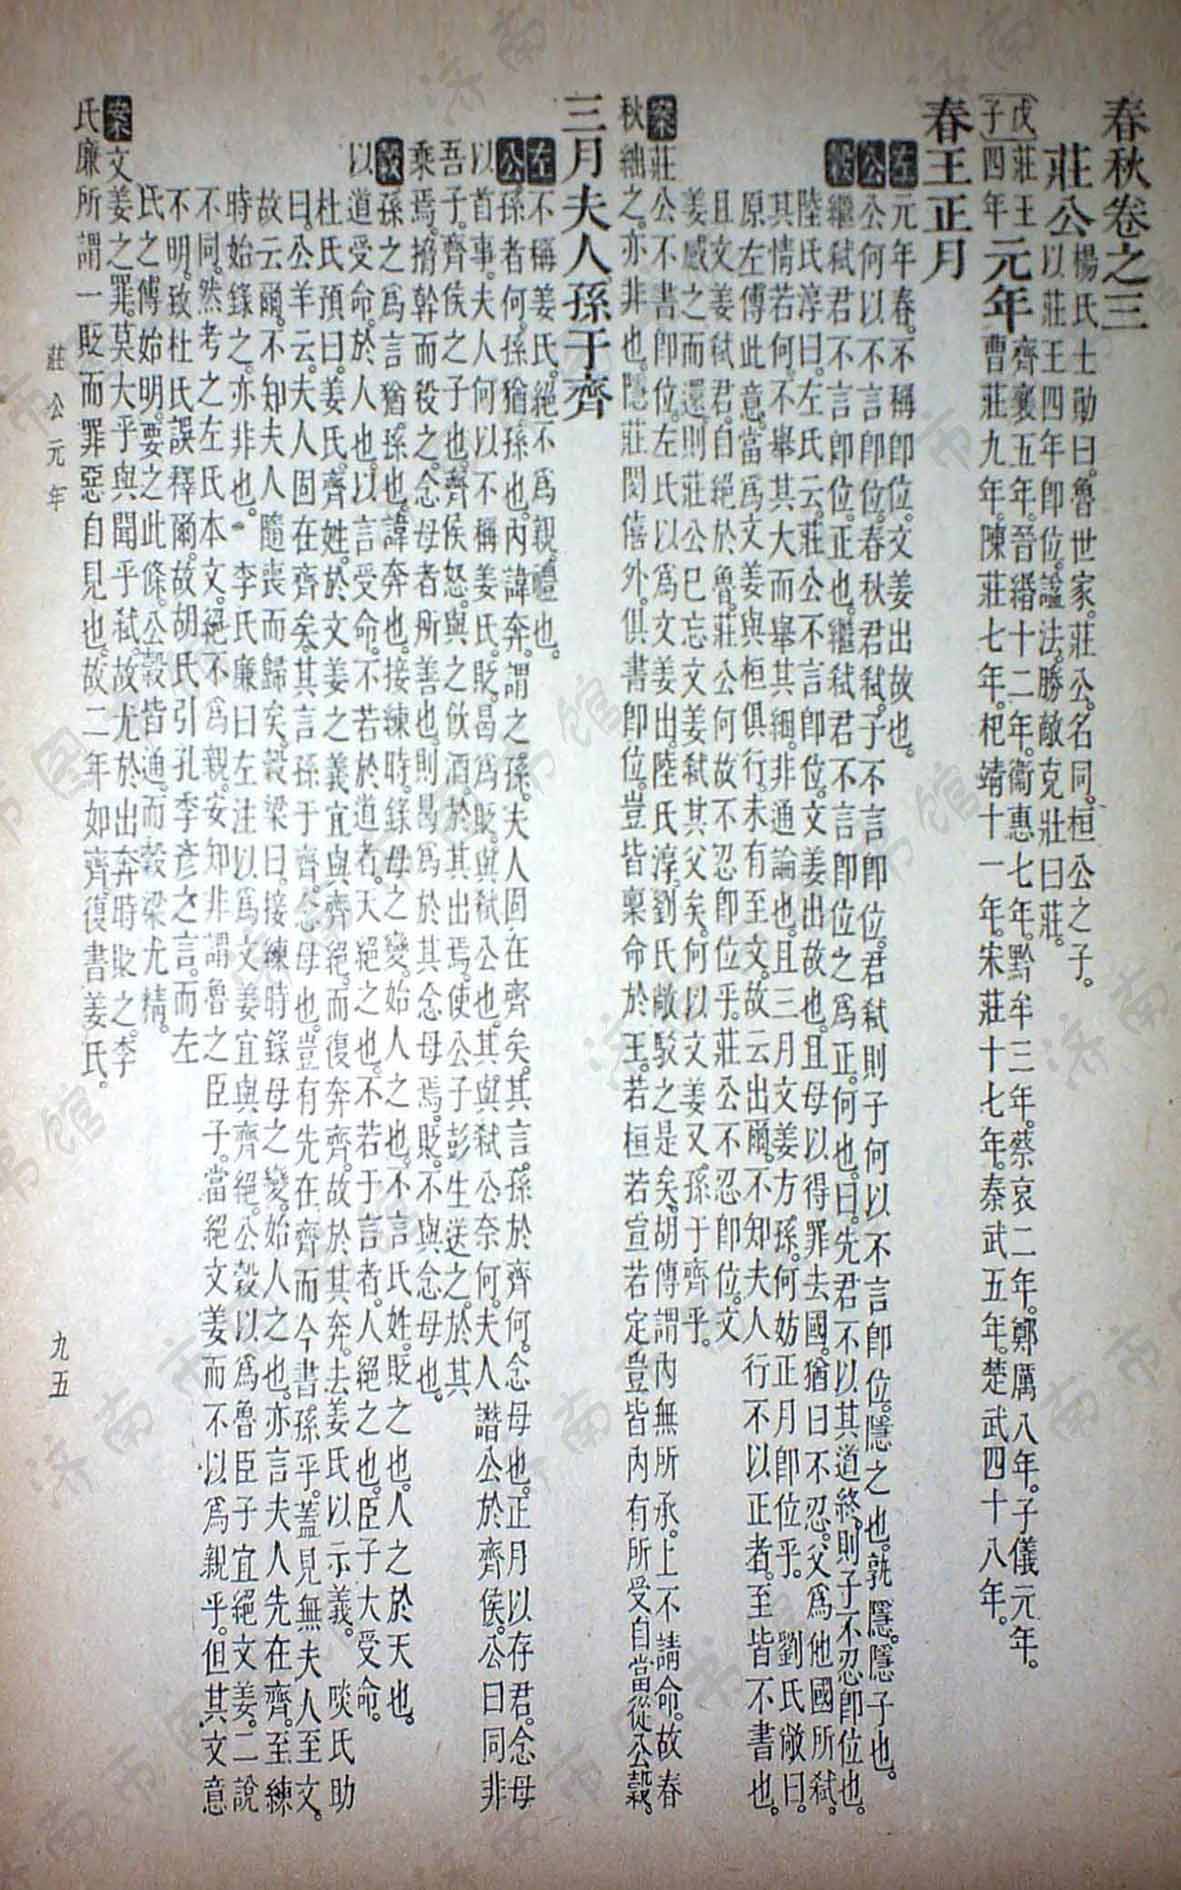 春秋卷之三
莊公楊氏士勛曰。魯世家。莊公名同。桓公之子。
以莊王四年卽位。謚法。勝敵克壯曰莊。
戊子莊王四年元年齊襄五年。晉緡十二年。衞惠七年。黔牟三年。蔡哀二年。鄭厲八年。子儀元年。
曹莊九年。陳莊七年。杞靖十一年。宋莊十七年。秦武五年。楚武四十八年。
春王正月
左元年春。不稱卽位。文姜出故也。
公公何以不言卽位。春秋君弒。子不言卽位。君弒則子何以不言卽位。隱之也。孰隱。隱子也。
穀繼弒君不言卽位。正也。繼弒君不言卽位之爲正。何也。曰。先君不以其道終。則子不忍卽位也。
陸氏淳曰。左氏云。莊公不言卽位。文姜出故也。且母以得罪去國。猶曰不忍。父爲他國所弒。
其情若何。不舉其大而舉其細。非通論也。且三月文姜方孫。何妨正月卽位乎。 劉氏敞曰。
原左傳此意。當爲文姜與桓俱行。未有至文。故云出爾。不知夫人行不以正者。至皆不書也。
且文姜弒君。自絕於魯。莊公何故不忍卽位乎。莊公不忍卽位。文
姜感之而還。則莊公已忘文姜弒其父矣。何以文姜又孫于齊乎。
案莊公不書卽位。左氏以爲文姜出。陸氏淳。劉氏敞駁之是矣。胡傳謂內無所承。上不請命。故春
秋絀之。亦非也。隱莊閔僖外。俱書卽位。豈皆稟命於王。若桓若宣若定豈皆內有所受自當從公穀。
三月夫人孫于齊
左不稱姜氏。絕不爲親。禮也。
公孫者何。孫猶孫也。內諱奔。謂之孫。夫人固在齊矣。其言孫於齊何。念母也。正月以存君。念母
以首事。夫人何以不稱姜氏。貶。曷爲貶。與弒公也。其與弒公奈何。夫人譖公於齊侯。公曰同非
吾子。齊侯之子也。齊侯怒。與之飮酒。於其出焉。使公子彭生送之。於其
乘焉。搚幹而殺之。念母者所善也。則曷爲於其念母焉。貶。不與念母也。
穀孫之爲言猶。孫也。諱奔也。接練時。錄母之變。始人之也。不言氏姓。貶之也。人之於天也。
以道受命。於人也。以言受命。不若於道者。天絕之也。不若于言者。人絕之也。臣子大受命。
杜氏預曰。姜氏。齊姓。於文姜之義宜與齊絕。而復奔齊。故於其奔。去姜氏以示義。 啖氏助
曰。公羊云。夫人固在齊矣。其言孫于齊。念母也。豈有先在齊而今書。孫乎。蓋見無夫人至文。
故云爾。不知夫人隨喪而歸矣。穀梁曰。接練時錄母之變。始人之也。亦言夫人先在齊。至練
時始錄之。亦非也。 李氏廉曰左注以爲文姜宜與齊絕。公穀以爲魯臣子宜絕文姜。二說
不同。然考之左氏本文。絕不爲親。安知非謂魯之臣子。當絕文姜而不以爲親乎。但其文意
不明。致杜氏誤釋爾。故胡氏引孔季彥之言。而左
氏之傳始明。要之此條。公穀皆通。而穀梁尤精。
案文姜之罪。莫大乎與聞乎弒。故尤於出奔時貶之。李
氏廉所謂一貶而罪惡自見也。故二年如齊復書姜氏。
莊公元年
九五